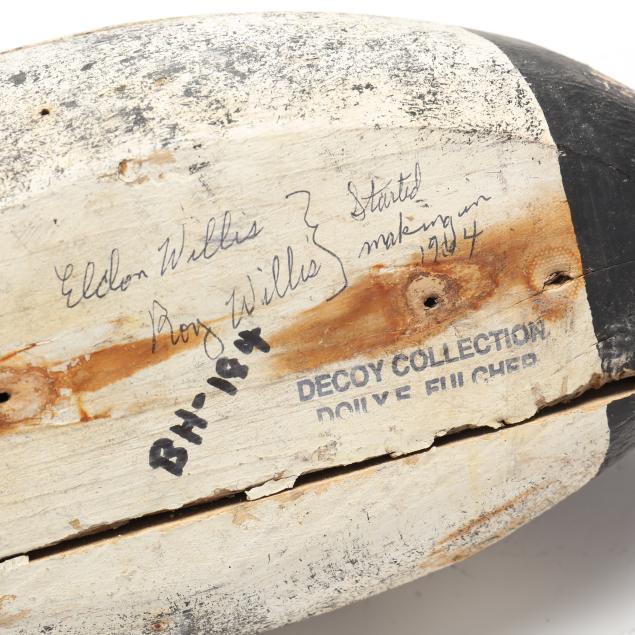 Eldon Willis
Roy Willis
Started
making in
1964
BH-184
DECOY COLLECTION
DOILY E. FULCHER